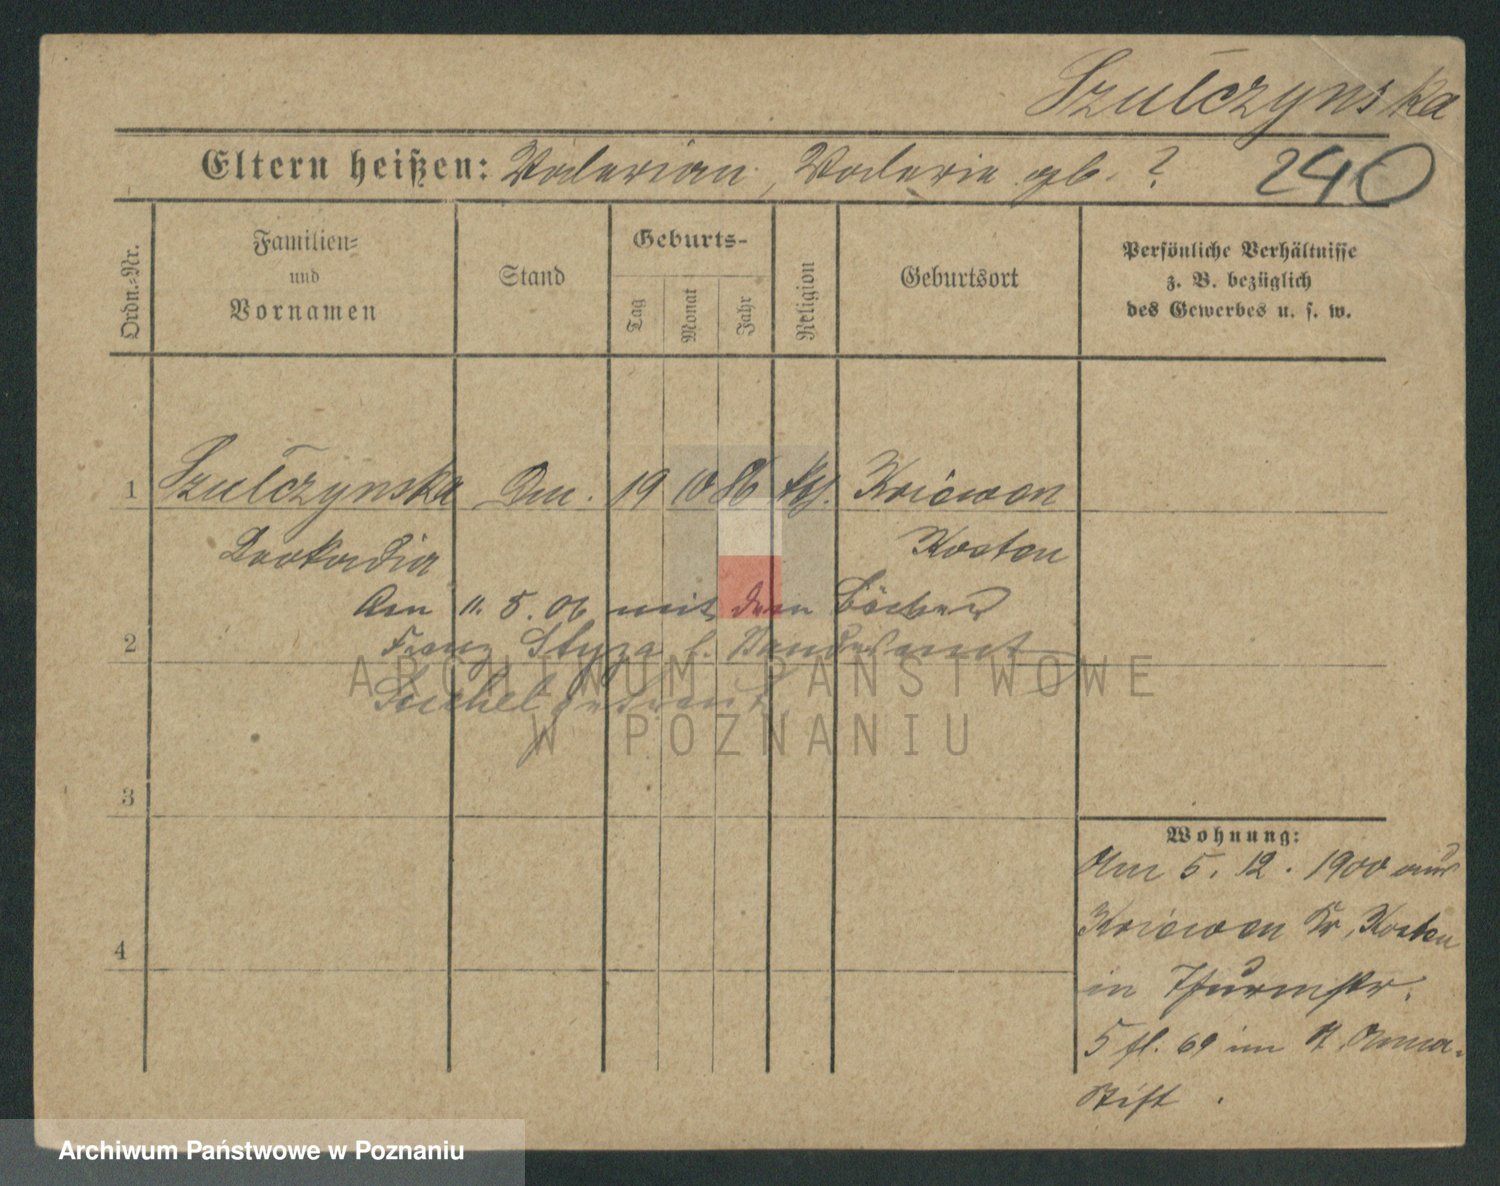 Szulczynska
Eltern heißen: Valerian, Valerie gb. ?
240
Ordn.-Nr.
Familien- und Vornamen
Stand
Geburts-
Tag
Monat
Jahr
Religion
Geburtsort
Persönliche Verhältnisse
z. B. bezüglich
des Gewerbes u. s. w.
1 Szulczynska 19 10 86 kth. Kriewen
Leokadia Kosten
Am 11. 5. 06 mit dem Bäcker
2 Franz Styza b. Standesamt
getraut.
3
4
Wohnung:
Am 5. 12. 1900 aus
Kriewen Kr. Kosten
in Thurmstr.
5 fl. 69 im St. Anna-
Stift.
ARCHIWUM PAŃSTWOWE
W POZNANIU
Archiwum Państwowe w Poznaniu